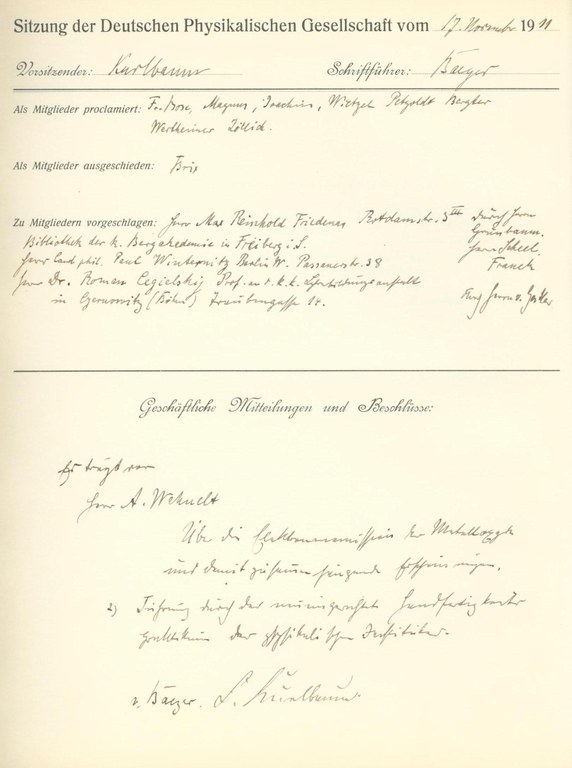 Sitzung der Deutschen Physikalischen Gesellschaft vom 17. November 1911
Vorsitzender: Kurlbaum Schriftführer: Baeyer
Als Mitglieder proclamiert: Fr. Bose, Magnus, Joachim, Wietzel Petzoldt Bergter
Wertheimer Zöllich.
Als Mitglieder ausgeschieden: Brix
Zu Mitgliedern vorgeschlagen: Herr Max Reinhold Friedenau durch Herrn
Grünbaum.
Bibliothek der k. Bergakademie in Freiberg i. S. Herrn Scheel.
Herr Cand phil. Paul Winternitz Berlin W. Passauerstr. 38 Franck
Herr Dr. Roman Cegielskij Prof. an d. k. k. Lehrerbildungsanstalt
in Czernowitz Traubengasse
Geschäftliche Mitteilungen und Beschlüsse:
Es trägt vor
Herr A. Wehnelt
Über die Elektronenemission der Metalloxyde
und damit zusammenhängende Erscheinungen.
2) Führung durch das Handfertigkeits
praktikum des physikalischen Institutes.
v. Baeyer. F. Kurlbaum